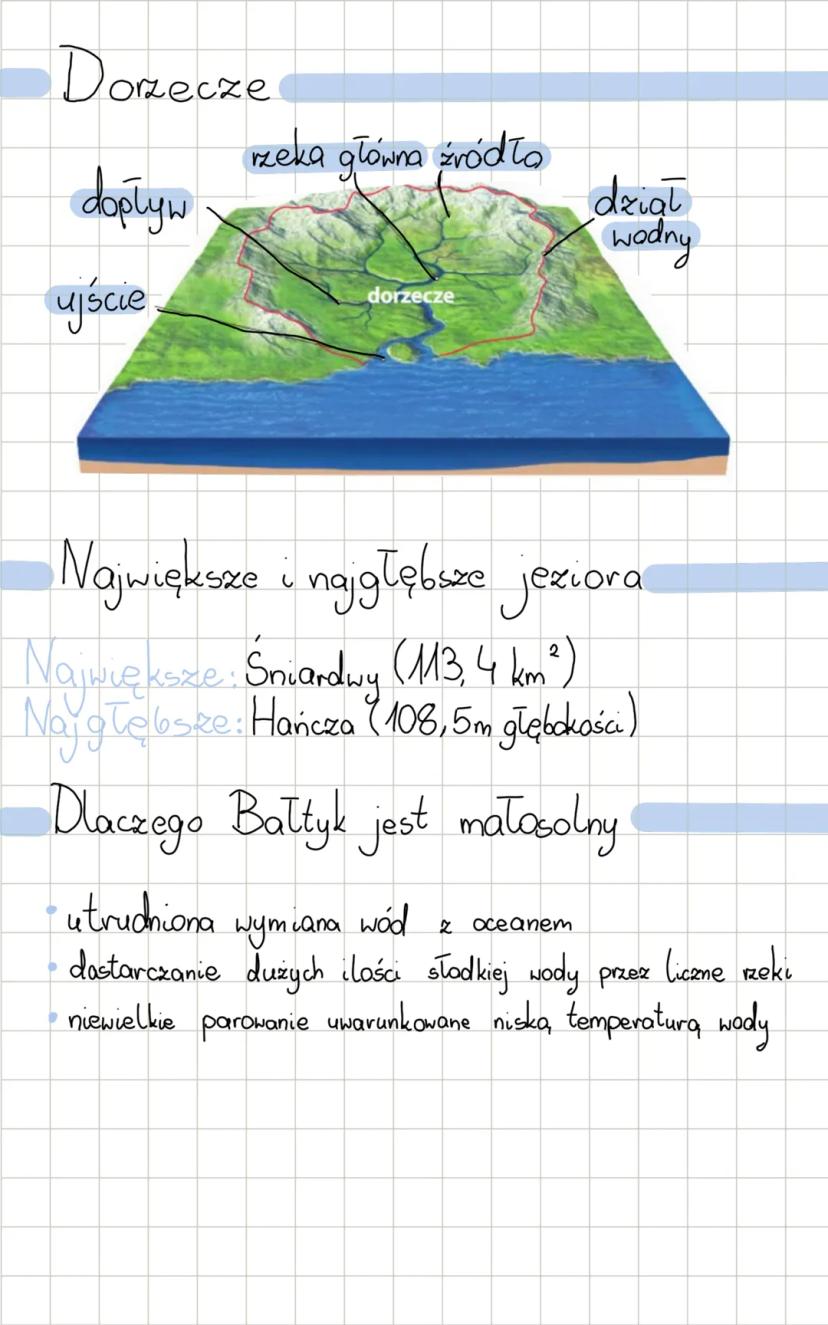 Dorzecze
rzeka główna źródło
dopływ
dział
wodny
ujście
dorzecze
Największe i najgłębsze jeziora
Największe: Śniardwy (113,4 km²)
Najgłębsze: Hańcza (108,5m głębokości)
Dlaczego Bałtyk jest małosolny
• utrudniona wymiana wód z oceanem
• dostarczanie dużych ilości słodkiej wody przez liczne rzeki
• niewielkie parowanie uwarunkowane niską temperaturą wody